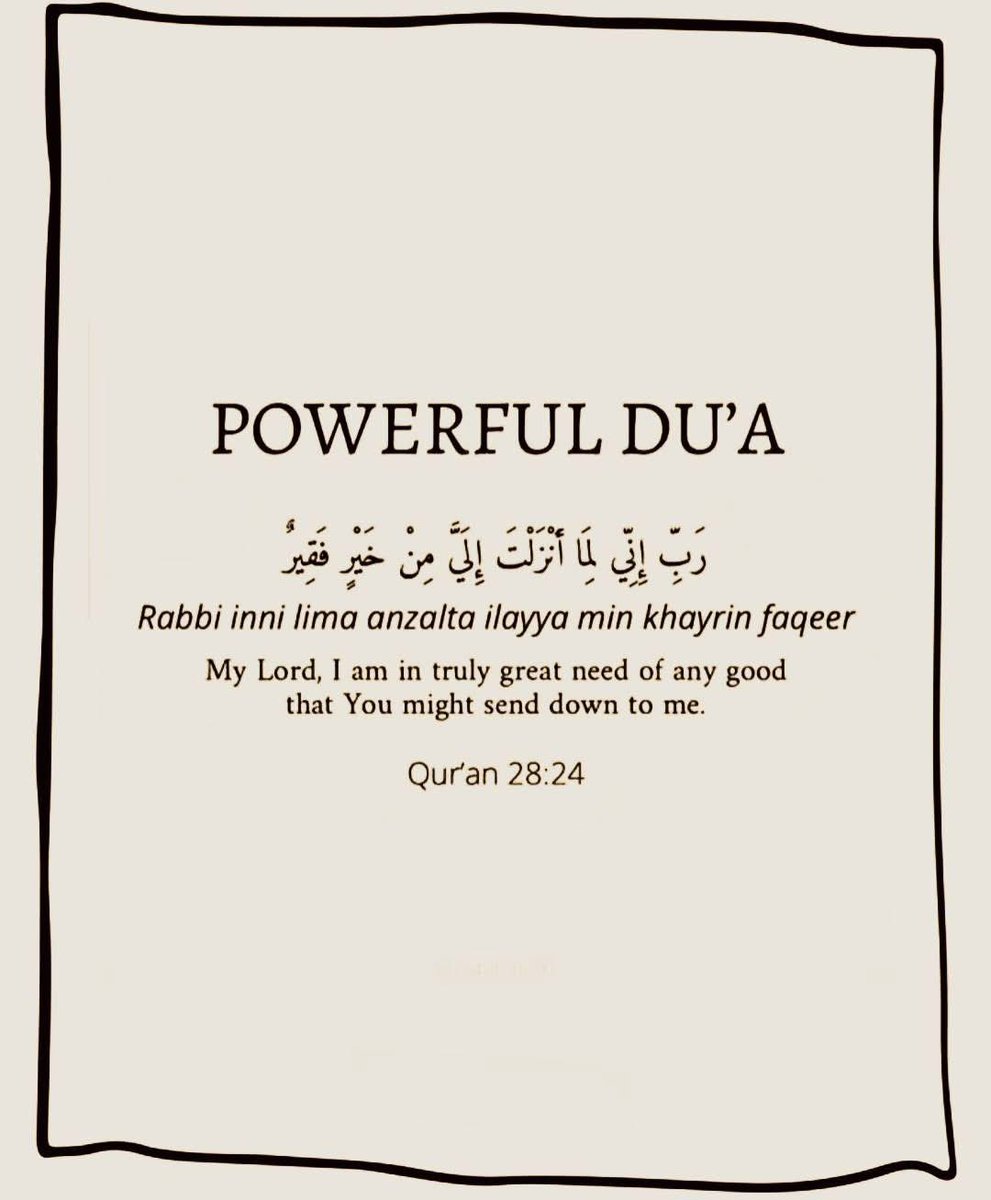 POWERFUL DU’A
رَبِّ إِنِّي لِمَا أَنْزَلْتَ إِلَيَّ مِنْ خَيْرٍ فَقِيرٌ
Rabbi inni lima anzalta ilayya min khayrin faqeer
My Lord, I am in truly great need of any good
that You might send down to me.
Qur’an 28:24